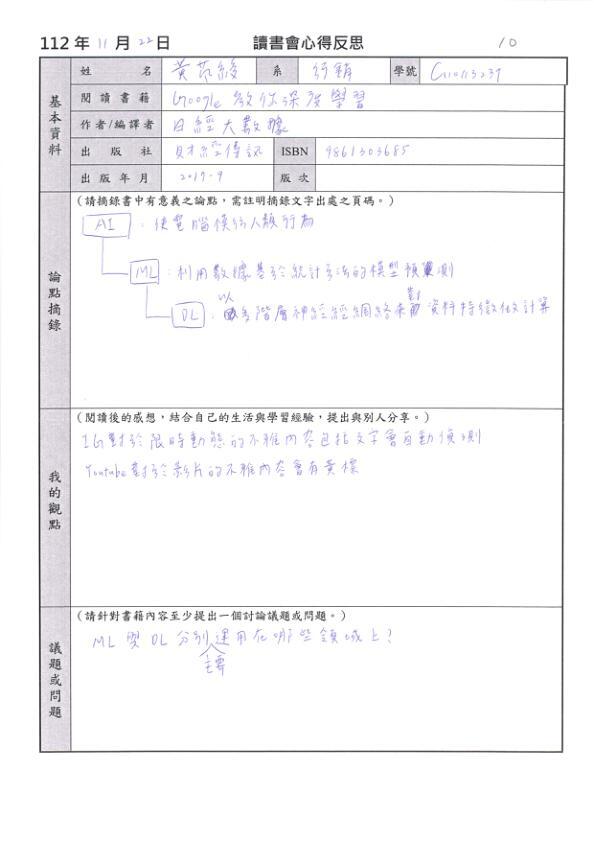 112 年 11 月 22 日 讀書會心得反思 10
基本資料
姓名 黃 綾 系 行銷 學號
閱讀書籍 Google 教你深度學習
作者/編譯者 日經大數據
出版社 財經傳訊 ISBN 9861303685
出版年月 2017.9 版次
論點摘錄
(請摘錄書中有意義之論點,需註明摘錄文字出處之頁碼。)
AI : 使電腦模仿人類行為
ML : 利用數據基於統計方法的模型預測
DL : 以多階層神經經網絡來對資料特徵做計算
我的觀點
(閱讀後的感想,結合自己的生活與學習經驗,提出與別人分享。)
IG對於限時動態的不雅內容包括文字會自動偵測
Youtube對於影片的不雅內容會有黃標
議題或問題
(請針對書籍內容至少提出一個討論議題或問題。)
ML 與 DL 分別主要運用在哪些領域上?